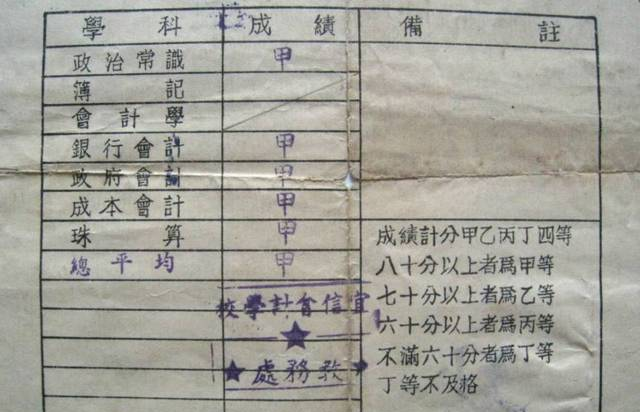 學科 成績 備註
政治常識 甲
簿記
會計學
銀行會計 甲
政府會計 甲
成本會計 甲
珠算 甲
總平均 甲
成績計分甲乙丙丁四等
八十分以上者爲甲等
七十分以上者爲乙等
六十分以上者爲丙等
不滿六十分者爲丁等
丁等不及格
校學計會信宜
處務教